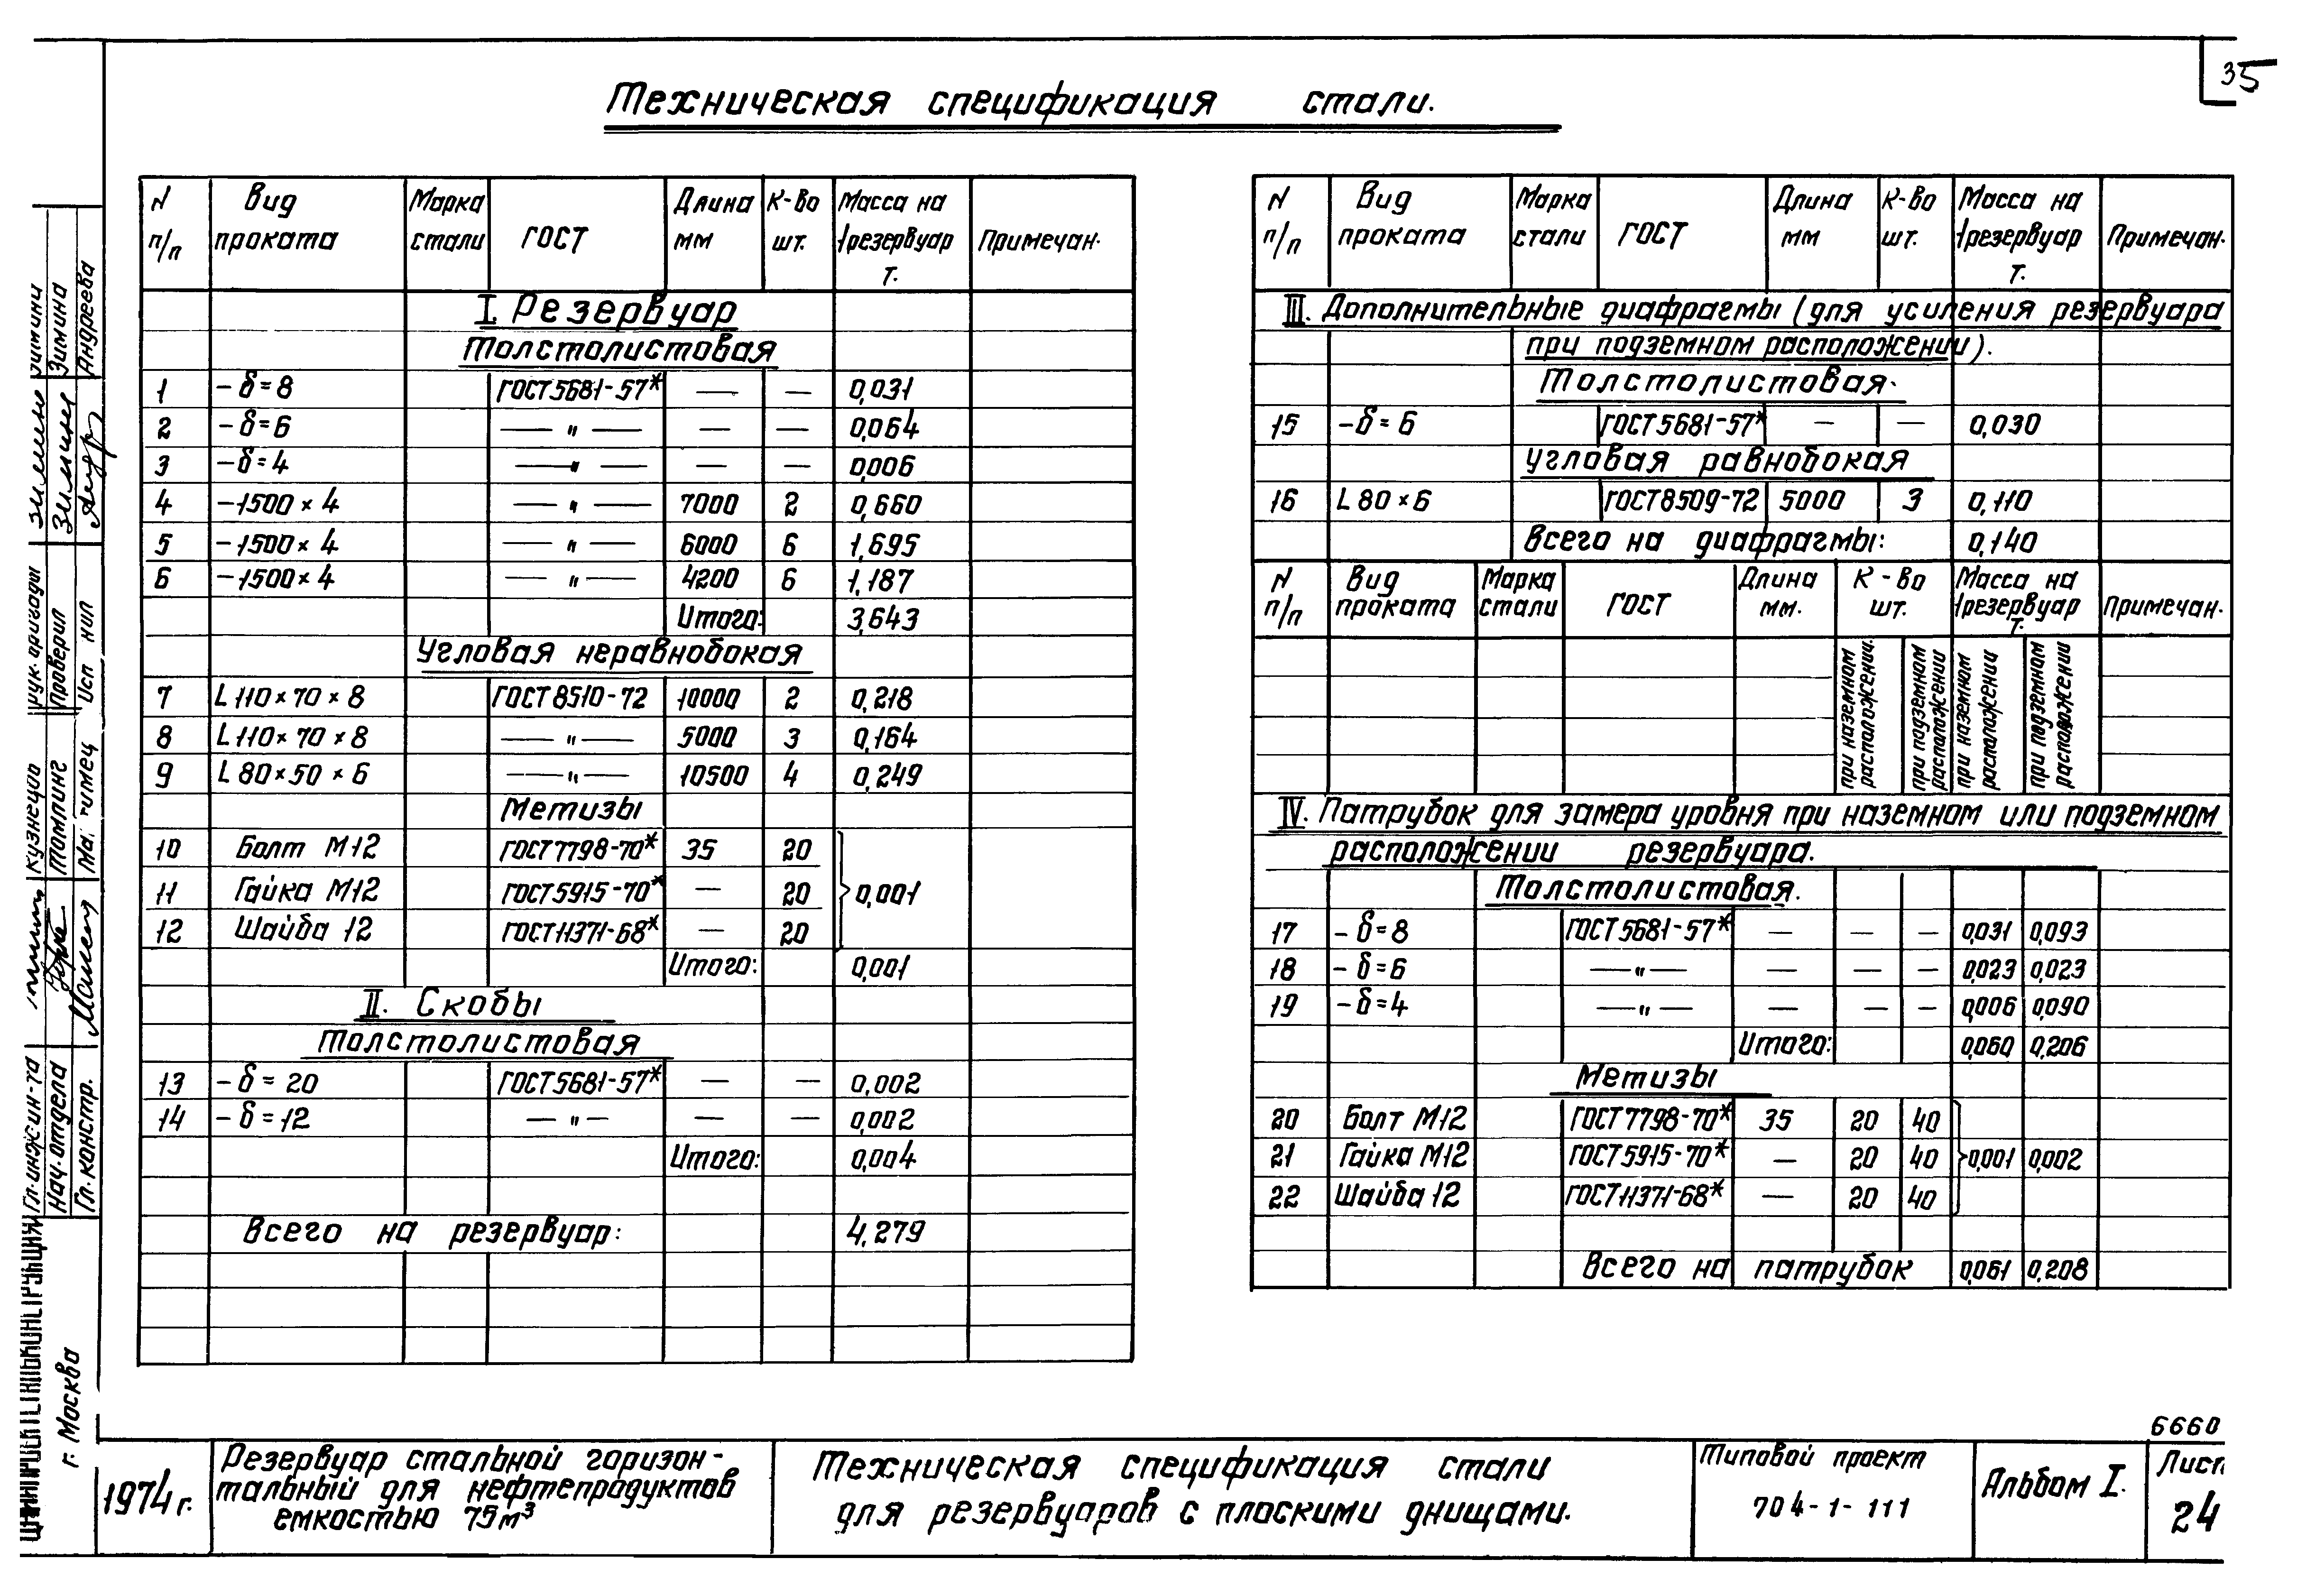 35
Техническая спецификация стали.
N п/п Вид проката Марка стали ГОСТ Длина мм К-во шт. Масса на 1резервуар т. Примечан.
I. Резервуар
Толстолистовая
1 -δ=8 ГОСТ5681-57* — — 0,031
2 -δ=6 —"— — — 0,064
3 -δ=4 —"— — — 0,006
4 -1500×4 —"— 7000 2 0,660
5 -1500×4 —"— 6000 6 1,695
6 -1500×4 —"— 4200 6 1,187
Итого: 3,643
Угловая неравнобокая
7 L110×70×8 ГОСТ8510-72 10000 2 0,218
8 L110×70×8 —"— 5000 3 0,164
9 L80×50×6 —"— 10500 4 0,249
Метизы
10 Болт М12 ГОСТ7798-70* 35 20
11 Гайка М12 ГОСТ5915-70* — 20 0,001
12 Шайба 12 ГОСТ11371-68* — 20
Итого: 0,001
II. Скобы
Толстолистовая
13 -δ=20 ГОСТ5681-57* — — 0,002
14 -δ=12 —"— — — 0,002
Итого: 0,004
Всего на резервуар: 4,279
N п/п Вид проката Марка стали ГОСТ Длина мм К-во шт. Масса на 1резервуар т. Примечан.
III. Дополнительные диафрагмы (для усиления резервуара
при подземном расположении).
Толстолистовая.
15 -δ=6 ГОСТ5681-57* — — 0,030
Угловая равнобокая
16 L80×6 ГОСТ8509-72 5000 3 0,110
Всего на диафрагмы: 0,140
N п/п Вид проката Марка стали ГОСТ Длина мм. К-во шт. Масса на 1резервуар т. Примечан.
при наземном расположении.
при подземном расположении
при наземном расположении
при подземном расположении
IV. Патрубок для замера уровня при наземном или подземном
расположении резервуара.
Толстолистовая.
17 -δ=8 ГОСТ5681-57* — — — 0,031 0,093
18 -δ=6 —"— — — — 0,023 0,023
19 -δ=4 —"— — — — 0,006 0,090
Итого: 0,060 0,206
Метизы
20 Болт М12 ГОСТ7798-70* 35 20 40
21 Гайка М12 ГОСТ5915-70* — 20 40 0,001 0,002
22 Шайба 12 ГОСТ11371-68* — 20 40
Всего на патрубок 0,061 0,208
Зимина
Андреева
Проверил
Кузнецов
Томлинг
Гл.инжин-та
Нач.отдела
Гл.констр.
г. Москва
6660
1974г.
Резервуар стальной горизон-
тальный для нефтепродуктов
емкостью 75м³
Техническая спецификация стали
для резервуаров с плоскими днищами.
Типовой проект
704-1-111
Альбом I.
Лист
24